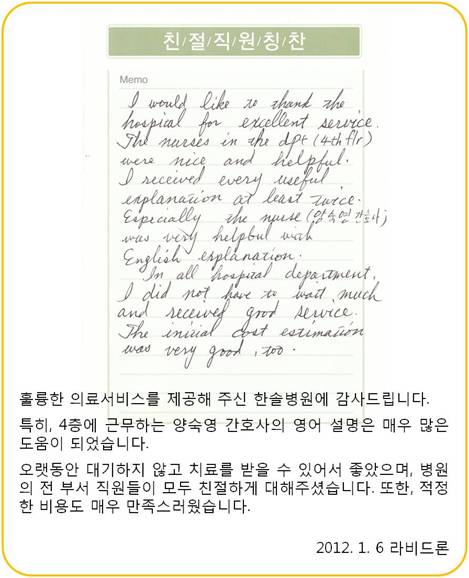 친/절/직/원/칭/찬
Memo
I would like to thank the
hospital for excellent service.
The nurses in the dpt (4th flr)
were nice and helpful.
I received every useful
explanation at least twice.
Especially the nurse (양숙영 간호사)
was very helpbul with
English explanation.
In all hospital department,
I did not have to wait much
and received good service.
The initial cost estimation
was very good, too.
훌륭한 의료서비스를 제공해 주신 한솔병원에 감사드립니다.
특히, 4층에 근무하는 양숙영 간호사의 영어 설명은 매우 많은
도움이 되었습니다.
오랫동안 대기하지 않고 치료를 받을 수 있어서 좋았으며, 병원
의 전 부서 직원들이 모두 친절하게 대해주셨습니다. 또한, 적정
한 비용도 매우 만족스러웠습니다.
2012. 1. 6 라비드론